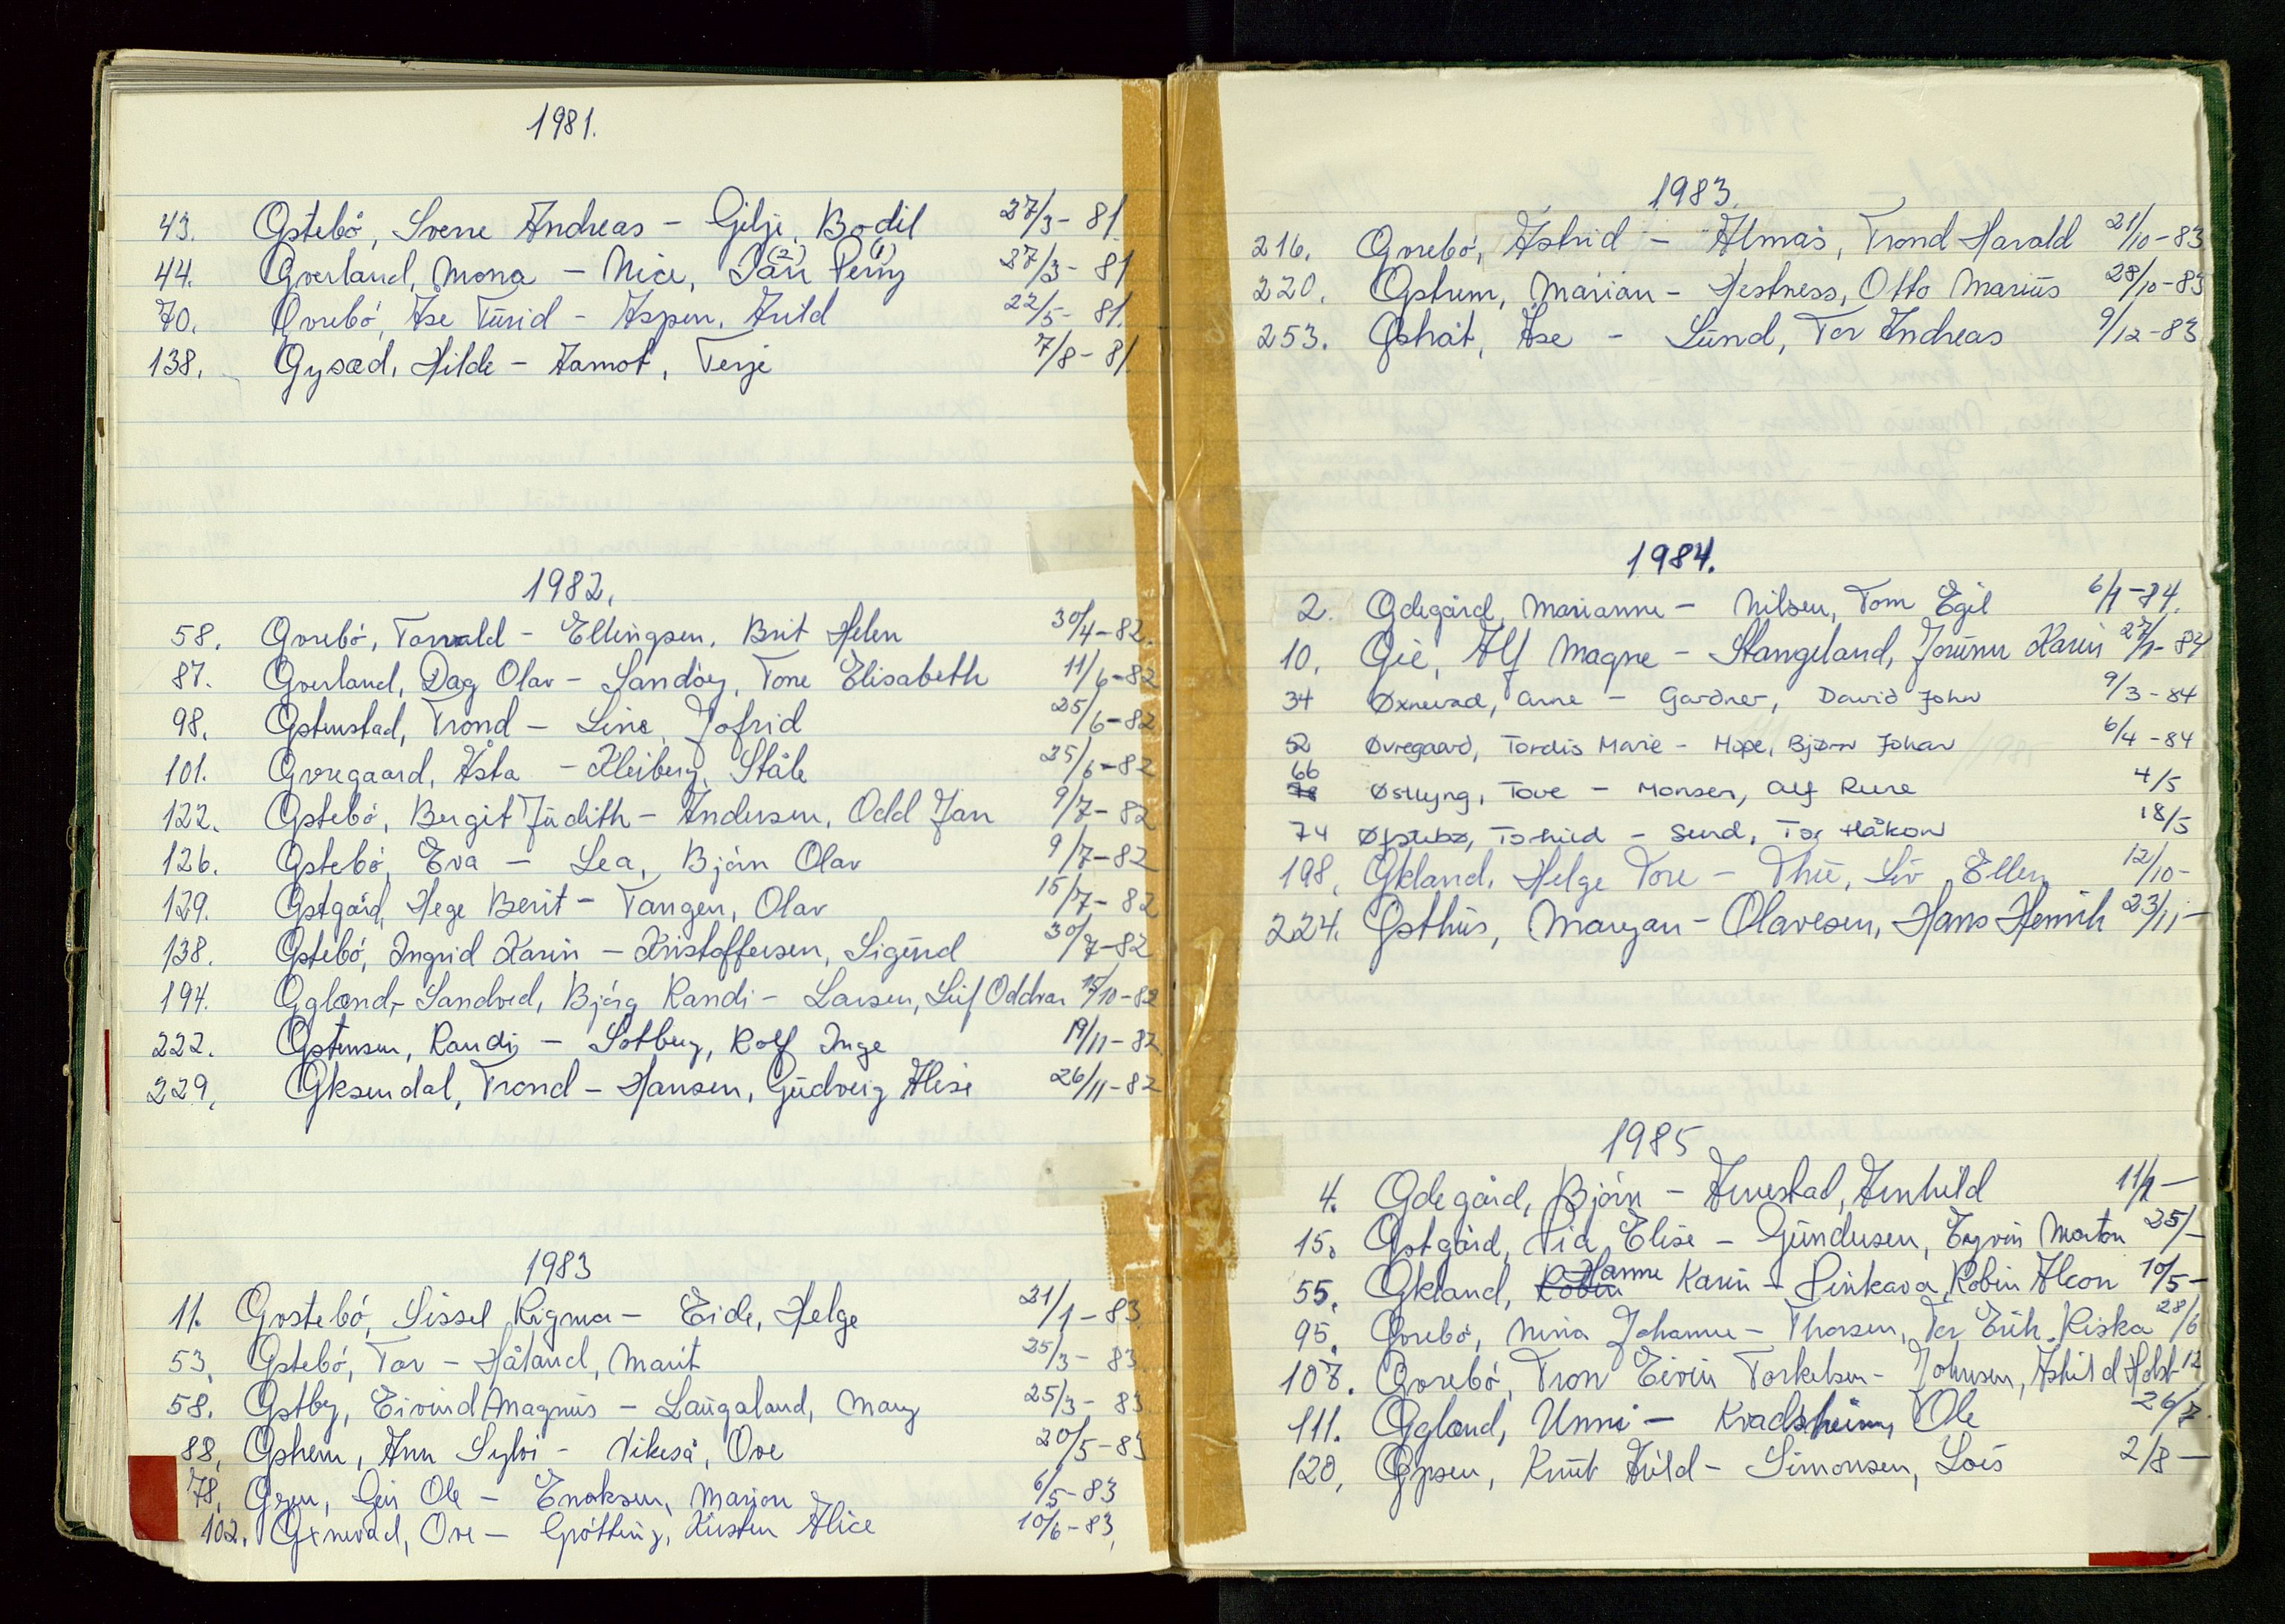 1981.
43. Østebø, Sverre Andreas - Gilje, Bodil 27/3 - 81.
44. Øverland, Mona - Nice, Jan (2) Perry (1) 27/3 - 81
70. Øvrebø, Åse Turid - Aspen, Arild 22/5 - 81.
138. Øysæd, Hilde - Aamot, Terje 7/8 - 81.
1982.
58. Øvrebø, Torvald - Ellingsen, Brit Helen 30/4 - 82.
87. Øverland, Dag Olav - Sandøy, Tone Elisabeth 11/6 - 82
98. Østenstad, Trond - Line, Jofrid 25/6 - 82
101. Øvregaard, Åsta - Kleiberg, Ståle 25/6 - 82
122. Østebø, Bergit Judith - Andersen, Odd Jan 9/7 - 82
126. Østebø, Eva - Lea, Bjørn Olav 9/7 - 82
129. Østgård, Hege Berit - Tangen, Olav 15/7 - 82
138. Østebø, Ingrid Karin - Kristoffersen, Sigurd 30/7 - 82
194. Øglænd, Sandved, Bjørg Randi - Larsen, Leif Oddvar 15/10 - 82
222. Østensen, Randi - Solberg, Rolf Inge 19/11 - 82
229. Øksendal, Trond - Hansen, Gudveig Alise 26/11 - 82
1983
11. Øvstebø, Sissel Rigmor - Eide, Helge 21/1 - 83
53. Østebø, Tor - Håland, Marit 25/3 - 83.
58. Østby, Eivind Magnus - Laugaland, Mary 25/3 - 83.
88. Østrem, Ann Sylvi - Vikeså, Ove 20/5 - 83
78. Øyen, Geir Ole - Enoksen, Marion 6/5 - 83
102. Øxnevad, Ove - Grøtting, Kirsten Alice 10/6 - 83.
1983.
216. Øvrebø, Astrid - Almås, Trond Harald 21/10 - 83
220. Østrem, Marian - Hestness, Otto Marius 28/10 - 83
253. Østråt, Åse - Lund, Tor Andreas 9/12 - 83
1984.
2. Ødegård, Marianne - Nilsen, Tom Egil 6/1 - 84.
10. Øie, Alf Magne - Stangeland, Jorunn Karin 27/1 - 84
34 Øxnevad, Anne - Gardner, David John 9/3 - 84
52 Øvregaard, Tordis Marie - Hope, Bjørn Johan 6/4 - 84
66 Østlyng, Tove - Monsen, Alf Rune 4/5
74 Øfstebø, Torhild - Sund, Tor Håkon 18/5
198. Økland, Helge Tore - Thu, Liv Ellen 12/10 -
224. Østhus, Maryan - Olavesen, Hans Henrik 23/11 -
1985
4. Ødegård, Bjørn - Arnestad, Arnhild 11/1 -
15. Østgård, Pia Elise - Gundersen, Eyvin Morton 25/ -
55. Økland, Robin Hanne Karin - Pinkava, Robin Alcon 10/5 -
95. Øvrebø, Nina Johanne - Thorsen, Tor Erik Riska 28/6
107. Øvrebø, Tron Eivin Torkelsen - Johnsen, Åshild Holst 12
111. Øglænd, Unni - Kvadsheim, Ole 26/7
120. Øpsen, Knut Arild - Simonsen, Lois 2/8 -